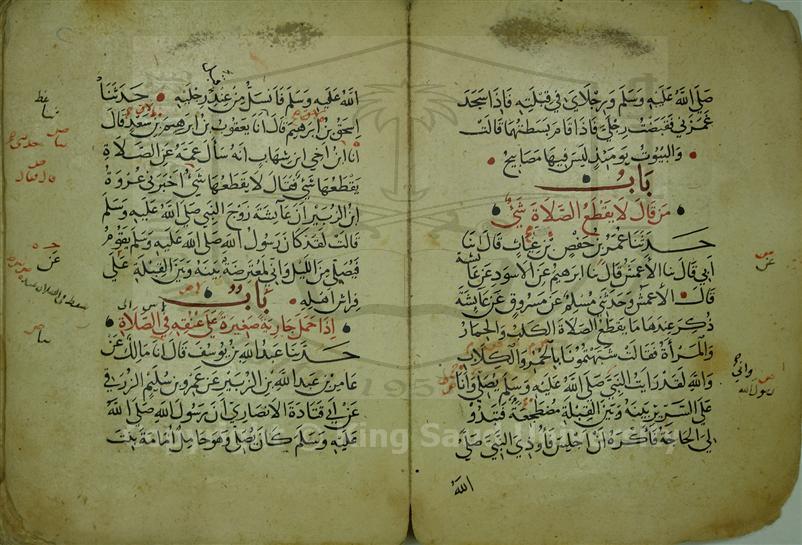 صَلَّى اللَّهُ عَلَيْهِ وَسَلَّمَ وَرِجْلَايَ فِي قِبْلَتِهِ فَإِذَا سَجَدَ
غَمَزَنِي فَقَبَضْتُ رِجْلَيَّ فَإِذَا قَامَ بَسَطْتُهُمَا قَالَتْ
وَالْبُيُوتُ يَوْمَئِذٍ لَيْسَ فِيهَا مَصَابِيحُ
بَابُ
مَنْ قَالَ لَا يَقْطَعُ الصَّلَاةَ شَيْءٌ
حَدَّثَنَا عُمَرُ بْنُ حَفْصِ بْنِ غِيَاثٍ قَالَ ثنا
أَبِي قَالَ ثنا الْأَعْمَشُ قَالَ ثنا إِبْرَهِيمُ عَنِ الْأَسْوَدِ عَنْ عَائِشَةَ
قَالَ الْأَعْمَشُ وَحَدَّثَنِي مُسْلِمٌ عَنْ مَسْرُوقٍ عَنْ عَائِشَةَ
ذُكِرَ عِنْدَهَا مَا يَقْطَعُ الصَّلَاةَ الْكَلْبُ وَالْحِمَارُ
وَالْمَرْأَةُ فَقَالَتْ شَبَّهْتُمُونَا بِالْحُمُرِ وَالْكِلَابِ
وَاللَّهِ لَقَدْ رَأَيْتُ النَّبِيَّ صَلَّى اللَّهُ عَلَيْهِ وَسَلَّمَ يُصَلِّي وَأَنَا
عَلَى السَّرِيرِ بَيْنَهُ وَبَيْنَ الْقِبْلَةِ مُضْطَجِعَةً فَتَبْدُو
لِيَ الْحَاجَةُ فَأَكْرَهُ أَنْ أَجْلِسَ فَأُوذِيَ النَّبِيَّ صَلَّى
اللَّهُ
عَنْ
وَإِنِّي
رسول الله
اللَّهُ عَلَيْهِ وَسَلَّمَ فَأَنْسَلُّ مِنْ عِنْدِ رِجْلَيْهِ حَدَّثَنَا
إِسْحَقُ بْنُ إِبْرَهِيمَ قَالَ أَنَا يَعْقُوبُ بْنُ إِبْرَهِيمَ بْنِ سَعْدٍ قَالَ
أَنَا ابْنُ أَخِي ابْنِ شِهَابٍ أَنَّهُ سَأَلَ عَمَّهُ عَنِ الصَّلَاةِ
يَقْطَعُهَا شَيْءٌ فَقَالَ لَا يَقْطَعُهَا شَيْءٌ أَخْبَرَنِي عُرْوَةُ
ابْنُ الزُّبَيْرِ أَنَّ عَائِشَةَ زَوْجَ النَّبِيِّ صَلَّى اللَّهُ عَلَيْهِ وَسَلَّمَ
قَالَتْ لَقَدْ كَانَ رَسُولُ اللَّهِ صَلَّى اللَّهُ عَلَيْهِ وَسَلَّمَ يَقُومُ
فَيُصَلِّي مِنَ اللَّيْلِ وَإِنِّي لَمُعْتَرِضَةٌ بَيْنَهُ وَبَيْنَ الْقِبْلَةِ عَلَى
فِرَاشِ أَهْلِهِ
بَابُ
إِذَا حَمَلَ جَارِيَةً صَغِيرَةً عَلَى عُنُقِهِ فِي الصَّلَاةِ
حَدَّثَنَا عَبْدُ اللَّهِ بْنُ يُوسُفَ قَالَ أَنَا مَالِكٌ عَنْ
عَامِرِ بْنِ عَبْدِ اللَّهِ بْنِ الزُّبَيْرِ عَنْ عَمْرِو بْنِ سُلَيْمٍ الزُّرَقِيِّ
عَنْ أَبِي قَتَادَةَ الْأَنْصَارِيِّ أَنَّ رَسُولَ اللَّهِ صَلَّى اللَّهُ
عَلَيْهِ وَسَلَّمَ كَانَ يُصَلِّي وَهُوَ حَامِلٌ أُمَامَةَ بِنْتَ
عَنْ
King Saud University
195